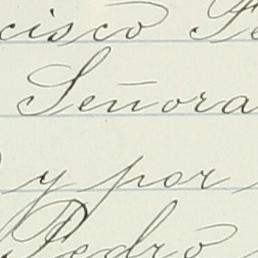 cisco
Señora
y por
Pedro